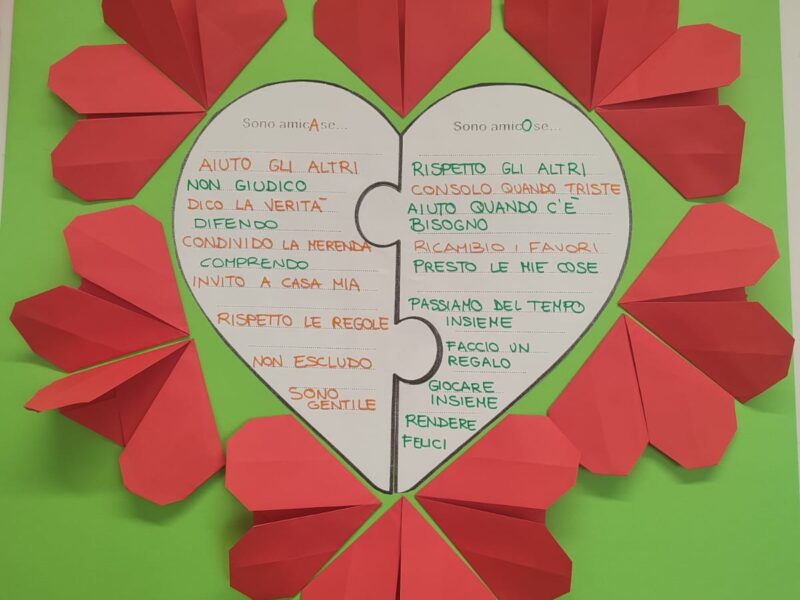 Sono amicA se...
AIUTO GLI ALTRI
NON GIUDICO
DICO LA VERITÀ
DIFENDO
CONDIVIDO LA MERENDA
COMPRENDO
INVITO A CASA MIA
RISPETTO LE REGOLE
NON ESCLUDO
SONO
GENTILE
Sono amicO se...
RISPETTO GLI ALTRI
CONSOLO QUANDO TRISTE
AIUTO QUANDO C'È
BISOGNO
RICAMBIO I FAVORI
PRESTO LE MIE COSE
PASSIAMO DEL TEMPO
INSIEME
FACCIO UN
REGALO
GIOCARE
INSIEME
RENDERE
FELICI